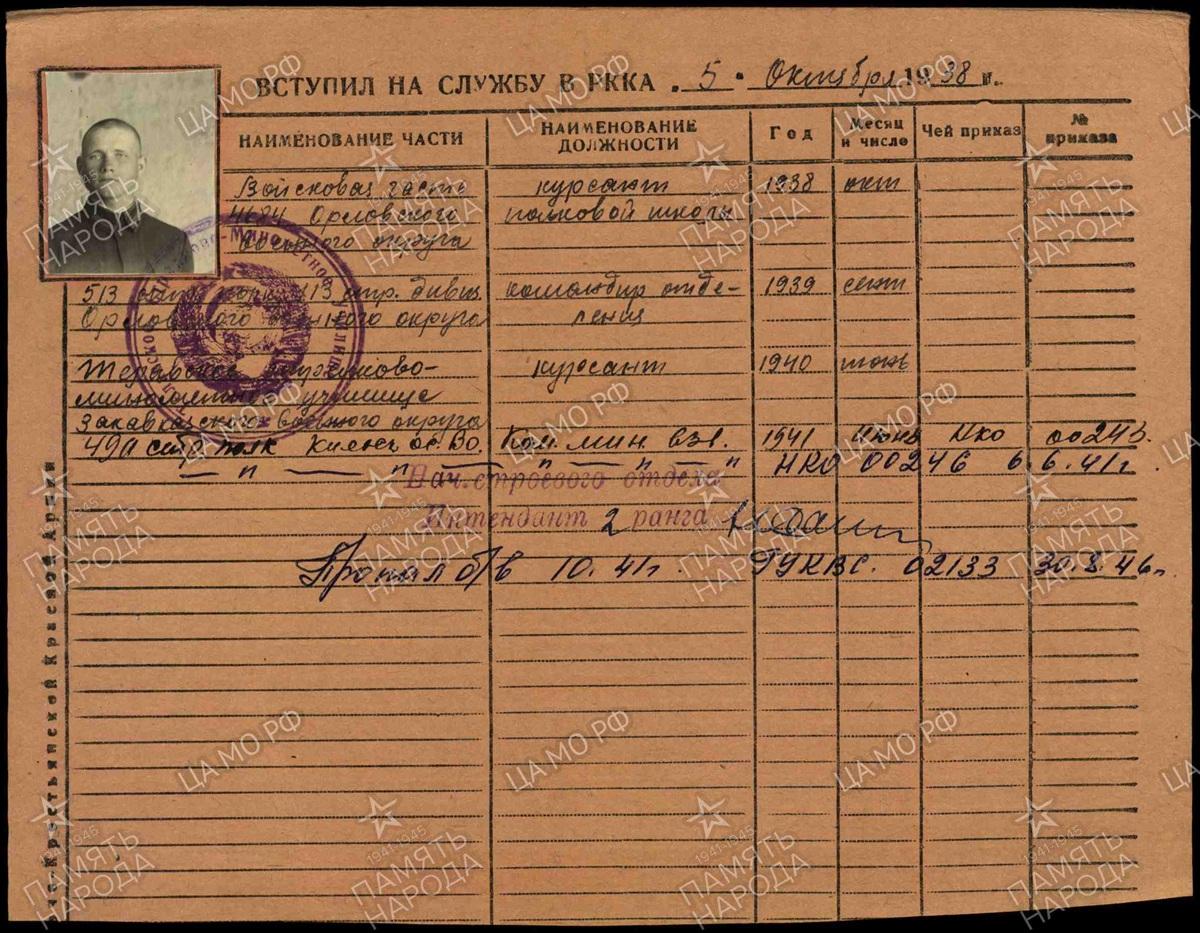 ВСТУПИЛ НА СЛУЖБУ В РККА „ 5 " Октября 1938 г.
НАИМЕНОВАНИЕ ЧАСТИ НАИМЕНОВАНИЕ ДОЛЖНОСТИ Год Месяц и число Чей приказ № приказа
Войсковая часть курсант 1938 окт
4684 Орловского полковой школы
военного округа
513 стр. полк 113 стр. дивиз. командир отде- 1939 сент
Орловского военного округа ления
стрелково- курсант 1940
миномётное училище
Закавказского военного округа
490 стр. полк Киевск. ос. ВО. Ком. мин. взв. 1941 Июнь НКО 00243.
— " — " — " — " — " НКО 00246 6.6.41г.
Нач. строевого отдела
Интендант 2 ранга
Пропал б/в 10.41г. ГУКВС. 02133 30.8.46г.
Крестьянской Красной Армии
ЦА МО РФ
1941-1945
ПАМЯТЬ НАРОДА